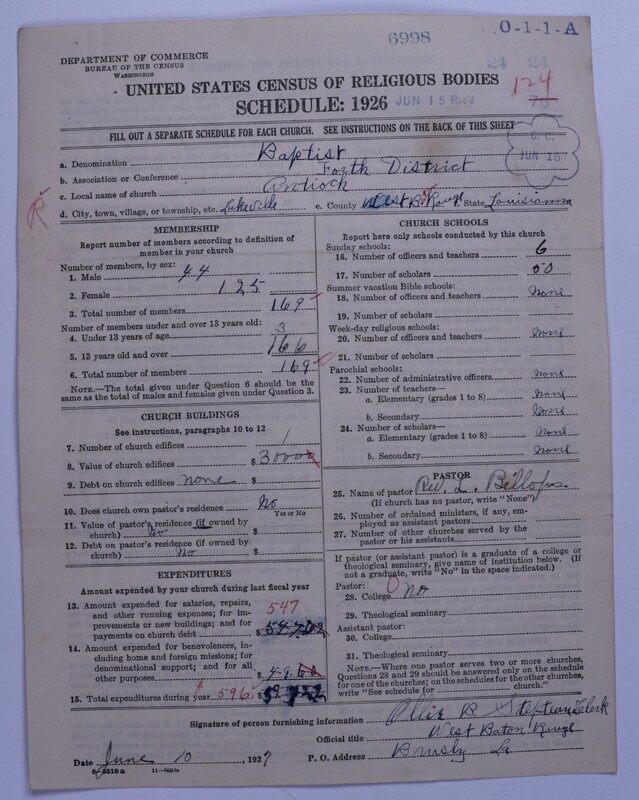 6998
O-1-1-A
DEPARTMENT OF COMMERCE
BUREAU OF THE CENSUS
WASHINGTON
24 24
UNITED STATES CENSUS OF RELIGIOUS BODIES
124
SCHEDULE: 1926 JUN 15 Rec'd
75
FILL OUT A SEPARATE SCHEDULE FOR EACH CHURCH. SEE INSTRUCTIONS ON THE BACK OF THIS SHEET
JUN 15
a. Denomination Baptist
b. Association or Conference Forth District
c. Local name of church Antioch
d. City, town, village, or township, etc. Lukeville e. County West B. Rouge State Louisianna
MEMBERSHIP
Report number of members according to definition of
member in your church
Number of members, by sex:
1. Male 44
2. Female 125
3. Total number of members 169
Number of members under and over 13 years old:
4. Under 13 years of age 3
5. 13 years old and over 166
6. Total number of members 169
NOTE.—The total given under Question 6 should be
the same as the total of males and females given under Question 3.
CHURCH BUILDINGS
See instructions, paragraphs 10 to 12
7. Number of church edifices 1
8. Value of church edifices $ 3000
9. Debt on church edifices none $
10. Does church own pastor's residence? No
Yes or No
11. Value of pastor's residence (if owned by
church) No $
12. Debt on pastor's residence (if owned by
church) No $
EXPENDITURES
Amount expended by your church during last fiscal year
13. Amount expended for salaries, repairs,
and other running expenses; for im-
provements or new buildings; and for
payments on church debt 547 $
14. Amount expended for benevolences, in-
cluding home and foreign missions; for
denominational support; and for all
other purposes $ 49
15. Total expenditures during year $ 596 $
CHURCH SCHOOLS
Report here only schools conducted by this church
Sunday schools:
16. Number of officers and teachers 6
17. Number of scholars
Summer vacation Bible schools:
18. Number of officers and teachers None
19. Number of scholars
Week-day religious schools:
20. Number of officers and teachers None
21. Number of scholars
Parochial schools:
22. Number of administrative officers None
23. Number of teachers—
a. Elementary (grades 1 to 8) None
b. Secondary None
24. Number of scholars—
a. Elementary (grades 1 to 8) None
b. Secondary None
PASTOR
25. Name of pastor Rev. L. Billops
(If church has no pastor, write "None")
26. Number of ordained ministers, if any, em-
ployed as assistant pastors
27. Number of other churches served by the
pastor or his assistants
If pastor (or assistant pastor) is a graduate of a college or
theological seminary, give name of institution below. (If
not a graduate, write "No" in the space indicated.)
Pastor:
28. College No
29. Theological seminary
Assistant pastor:
30. College
31. Theological seminary
NOTE.—Where one pastor serves two or more churches,
Questions 28 and 29 should be answered only on the schedule
for one of the churches; on the schedules for the other churches,
write "See schedule for church."
Signature of person furnishing information Ollie B. Clerk
Official title West Baton Rouge
Date June 10, 1927 P. O. Address Brusly La
8-5518a 11-9034a